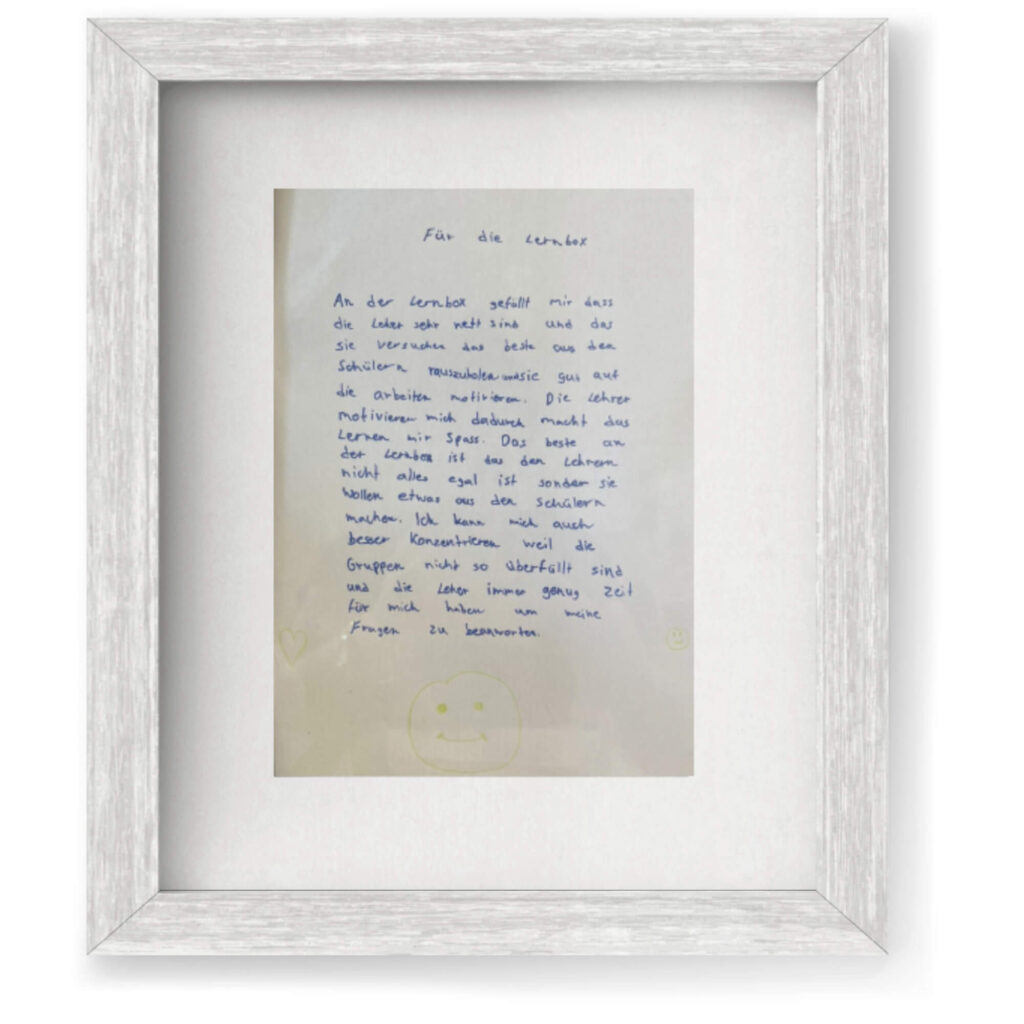 Für die Lernbox
An der Lernbox gefällt mir dass
die Leher sehr nett sind und das
sie versuchen das beste aus den
Schülern rauszuholen und sie gut auf
die arbeiten motivieren. Die Lehrer
motivieren mich dadurch macht das
Lernen mir Spass. Das beste an
der Lernbox ist das den Lehrern
nicht alles egal ist sonder sie
Wollen etwas aus den Schülern
machen. Ich kann mich auch
besser Konzentrieren weil die
Gruppen nicht so überfüllt sind
und die Leher immer genug Zeit
für mich haben um meine
Fragen zu beanworten.